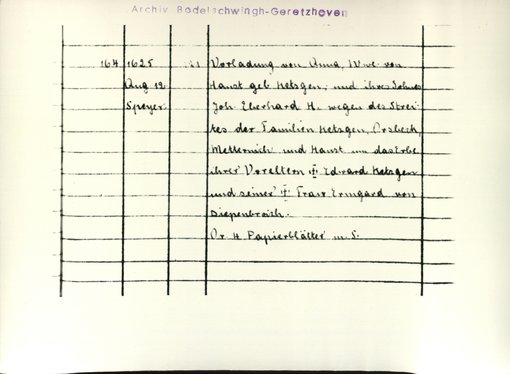 Archiv Bodelschwingh-Geretzhoven
164 1625 Vorladung von Anna, Wwe. von
Aug 12 Haust geb. Metsgen, und ihres Sohnes
Speyer. Joh. Eberhard H. wegen des Strei-
tes der Familien Metsgen, Orsbeck,
Metternich und Haust um das Erbe
ihrer Voreltern Edward Metsgen
und seiner Frau Ermgard von
Diepenbroich.
Or. 4 Papierblätter m. S.